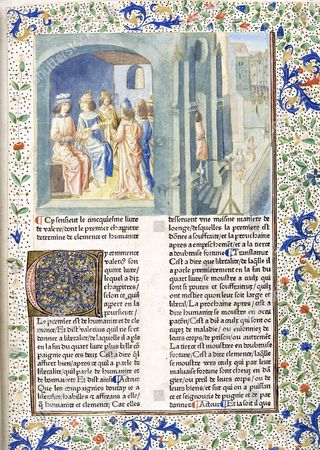 Cy sensieut le cincquiesme liure
de valere, dont le premier chapitre
determine de clemence et humanite
Cy commence
valere son
quint liure/
lequel a dix
chapitres/
selon ce quil
appert en la
poursieute/
Le premier est de humanite et de cle
mence/ Et dist valerius quil ne sest
donner a liberalite/ de laquelle il a ple
en la fin du quart liure plus belle
paignie que ces deux Cest a dire qil
affiert bien/ apres ce quil a parle de
liberalite/ quil parle de humanite et
de bonnairete Et dist ainsi Acteur
Que les compaignies
liberalite/ habilles et
humanite et clemence/ Car elles
desseruent vne mesme maniere de
loenge/ desquelles la premiere est
donnee a souffraite/ et la prouchaine
apres a empeschemet/ et a la tierce
a doubtense fortune Translateur
Cest a dire que liberalite/ de laqlle il
a parle premierement en la fin du
quart liure/ se moustre a ceulx qui
sont si poures et souffraiteux/ quilz
ont mestier quon leur soit large et
liberal/ La prouchaine apres/ cest a
dire humanite se moustre en occu
pacion/ Cest a dire a ceulx qui sont
es de maladie/ ou
leurs corps/ de prison/ ou autremet
La tierce est moustree en doubteuse
fortune/ Cest a dire clemence/ laqlle
se moustre vers ceulx qui par leur
malvaise fortune sont cheuz en dan
gier/ ou peril de leurs corps/ ou de
leurs biens/ et sur qui on a puissan
ce et seignourie de pugnir et de par
donner Acteur Et ia soit il que